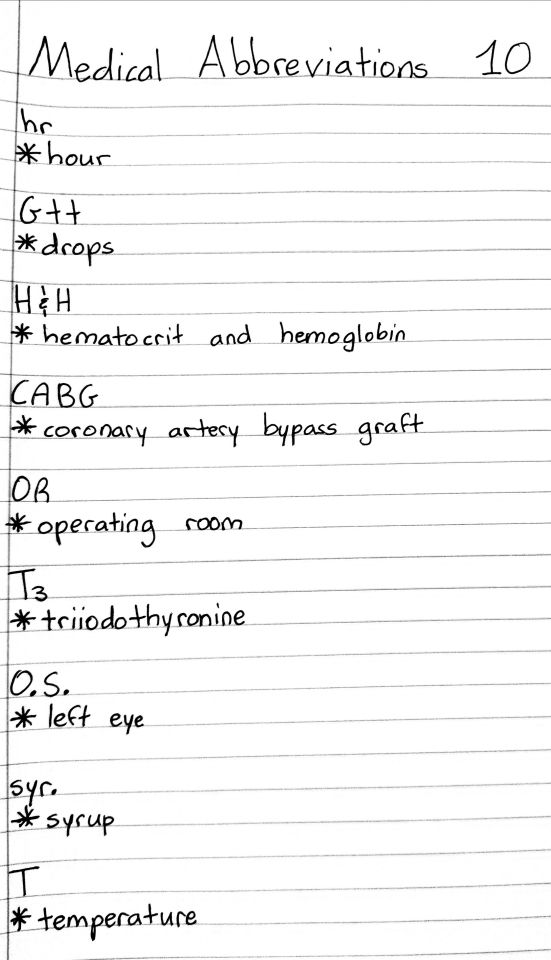 Medical Abbreviations 10
hr
* hour
Gtt
* drops
H & H
* hematocrit and hemoglobin
CABG
* coronary artery bypass graft
OR
* operating room
T₃
* triiodothyronine
O.S.
* left eye
syr.
* syrup
T
* temperature